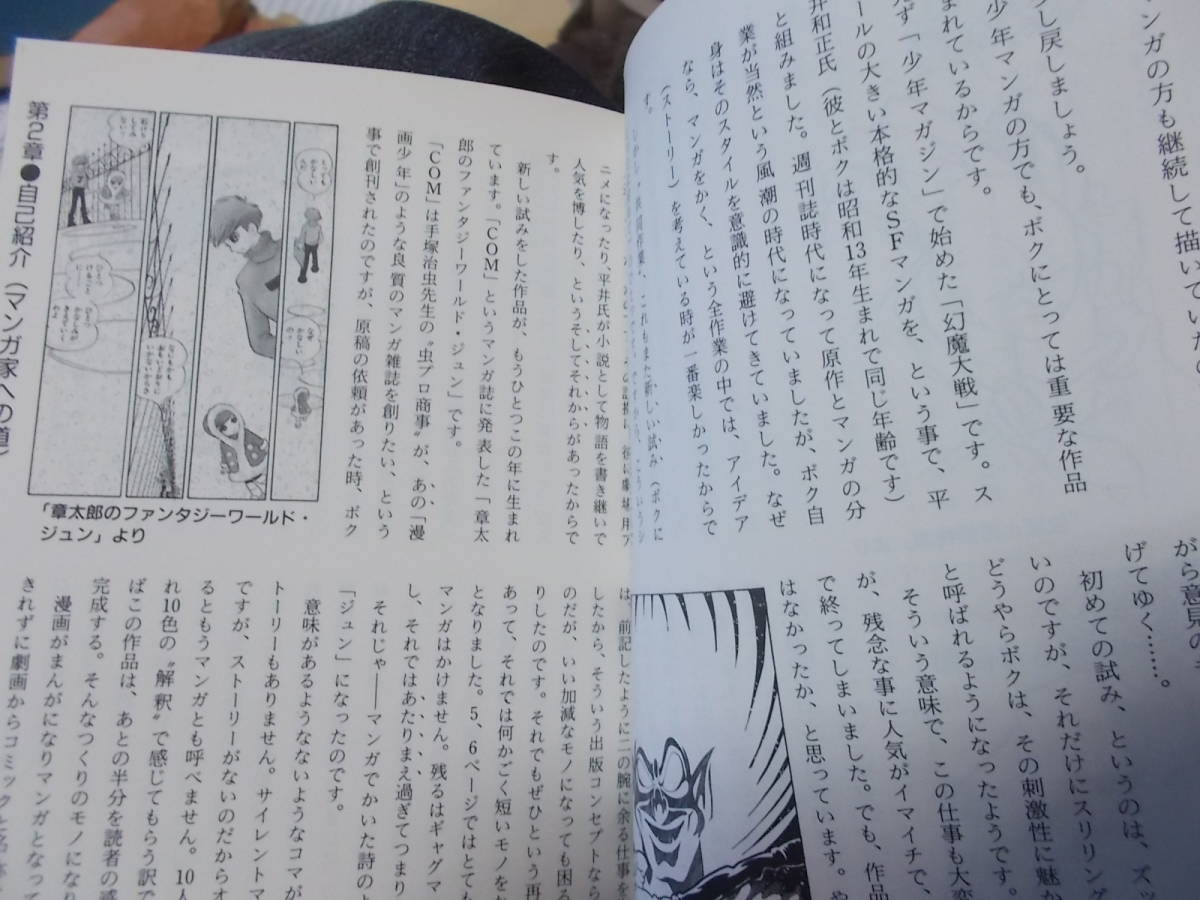 マンガの方も継続して描いていたの
少し戻しましょう。
少年マンガの方でも、ボクにとっては重要な作品
まれているからです。
ず「少年マガジン」で始めた「幻魔大戦」です。ス
ールの大きい本格的なSFマンガを、という事で、平
井和正氏（彼とボクは昭和13年生まれで同じ年齢です）
と組みました。週刊誌時代になって原作とマンガの分
業が当然という風潮の時代になっていましたが、ボク自
身はそのスタイルを意識的に避けてきていました。なぜ
なら、マンガをかく、という全作業の中では、アイデア
（ストーリー）を考えている時が一番楽しかったからで
す。
これもまた新しい試み（ボクに
がら意見の
げてゆく……。
初めての試み、というのは、ズッ
いのですが、それだけにスリリング
どうやらボクは、その刺激性に魅か
と呼ばれるようになったようです。
そういう意味で、この仕事も大変
が、残念な事に人気がイマイチで、
で終ってしまいました。でも、作品
はなかったか、と思っています。や
ニメになったり、平井氏が小説として物語を書き継いで
人気を博したり、というそしてそれからがあったからで
す。
新しい試みをした作品が、もうひとつこの年に生まれ
ています。「COM」というマンガ誌に発表した「章太
郎のファンタジーワールド・ジュン」です。
「COM」は手塚治虫先生の〝虫プロ商事〟が、あの「漫
画少年」のような良質のマンガ雑誌を創りたい、という
事で創刊されたのですが、原稿の依頼があった時、ボク
「章太郎のファンタジーワールド・
ジュン」より
第2章●自己紹介（マンガ家への道）
は、前記したように二の腕に余る仕事を
したから、そういう出版コンセプトなら
のだが、いい加減なモノになっても困る
りしたのです。それでもぜひという再
あって、それでは何かごく短いモノをな
となりました。5、6ページではとても
マンガはかけません。残るはギャグマ
し、それではあたりまえ過ぎてつまり
それじゃ——マンガでかいた詩のよ
「ジュン」になったのです。
意味があるようなないようなコマが
トーリーもありません。サイレントマ
ですが、ストーリーがないのだからオ
るともうマンガとも呼べません。10人
れ10色の〝解釈〟で感じてもらう訳で
ばこの作品は、あとの半分を読者の感
完成する。そんなつくりのモノになり
漫画がまんがになりマンガとなって
きれずに劇画からコミックと名称